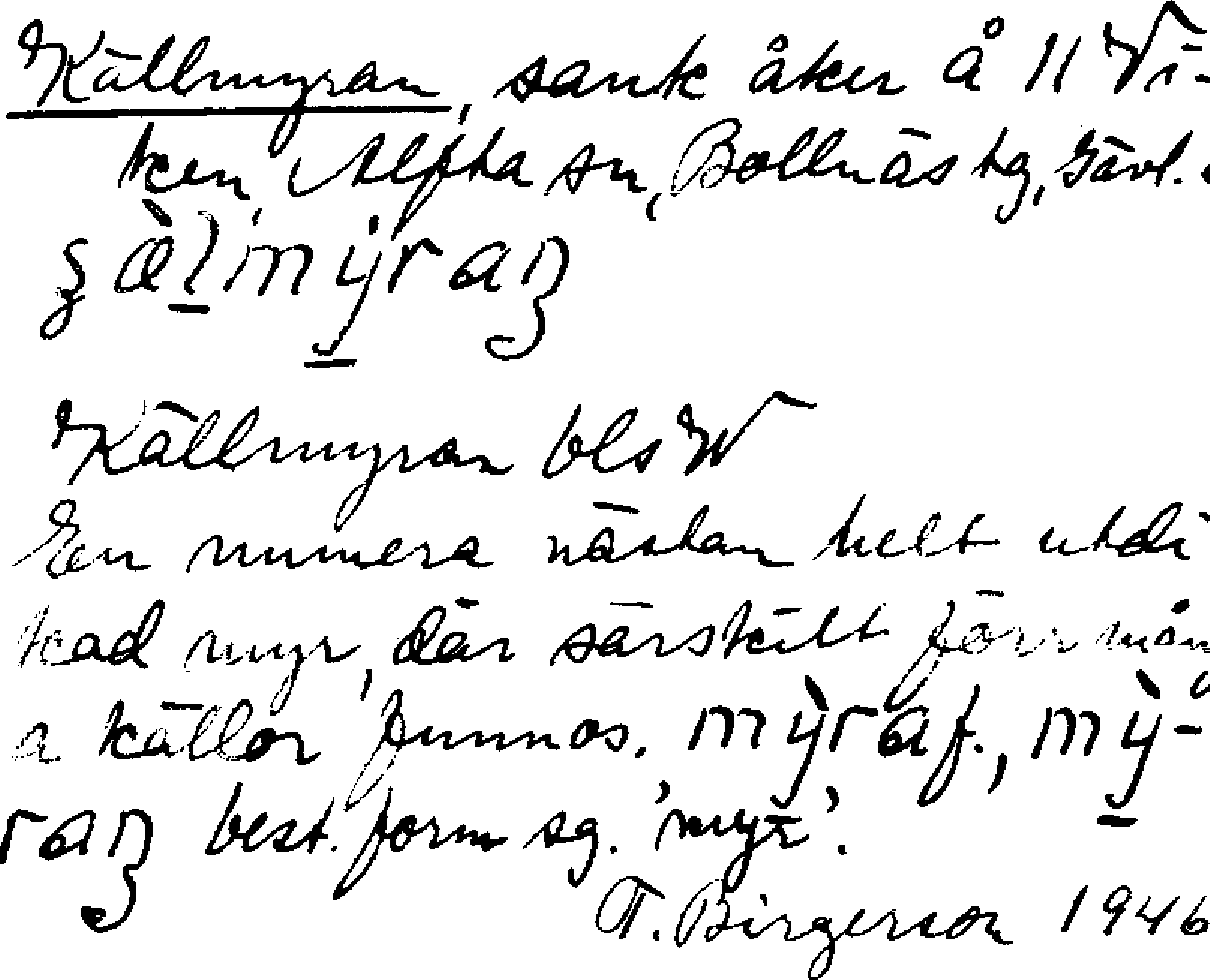 Källmyran, sank åker å 11 Vi-
ken, Alfta sn, Bollnäs tg, Gävl.
myran
Källmyran bls W
En numera nästan helt utdi
kad myr, där särskilt förr mång
a källor funnos. mỳra f., mỳ-
best. form sg. 'myr'.
T. Birgerson 1946